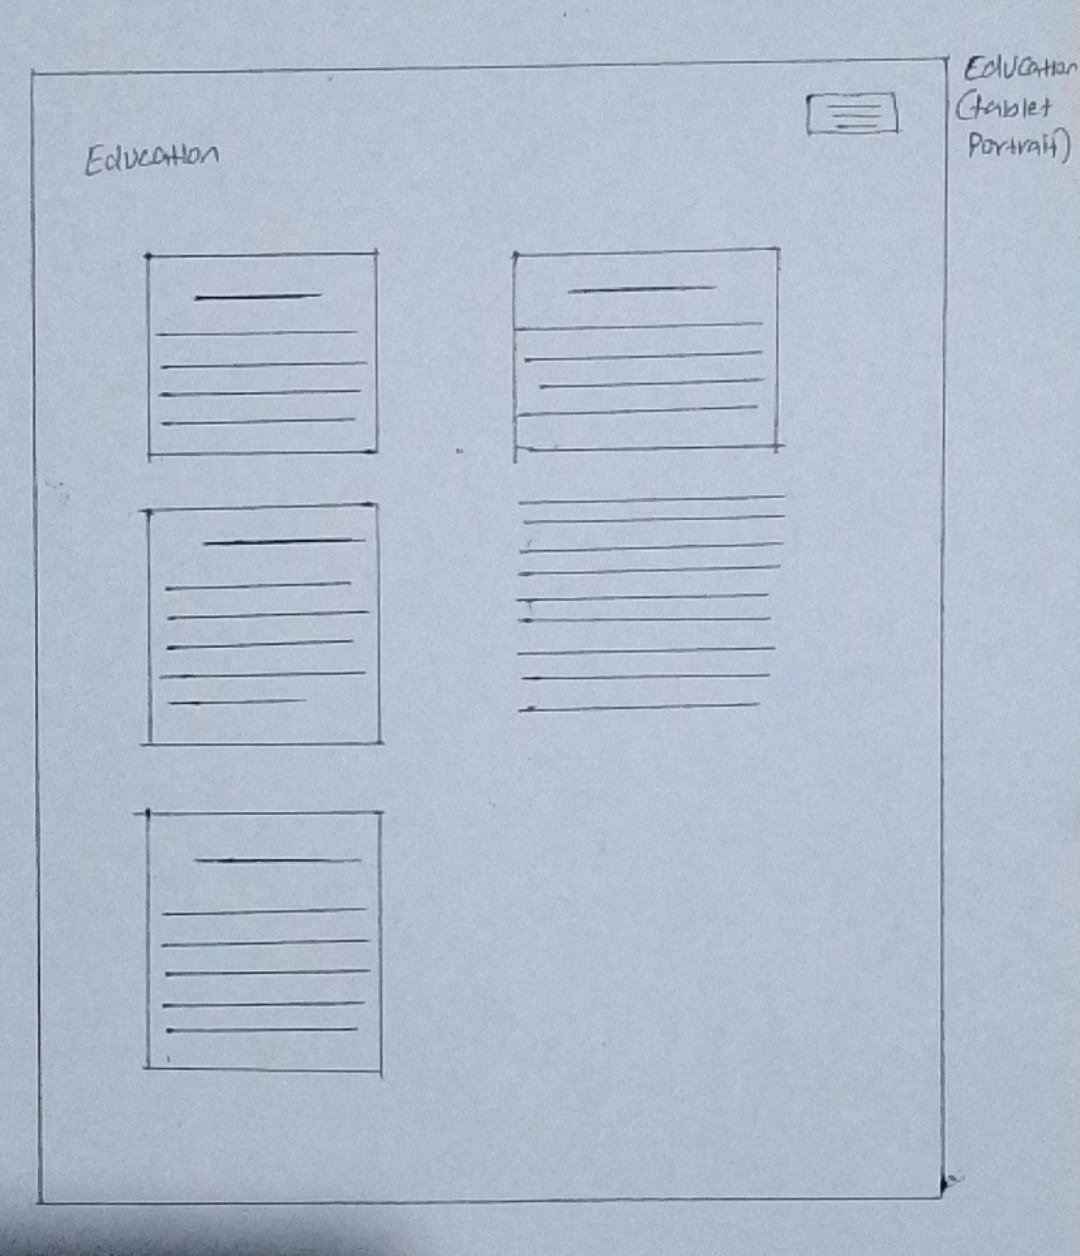 Education
(tablet
Portrait)
Education